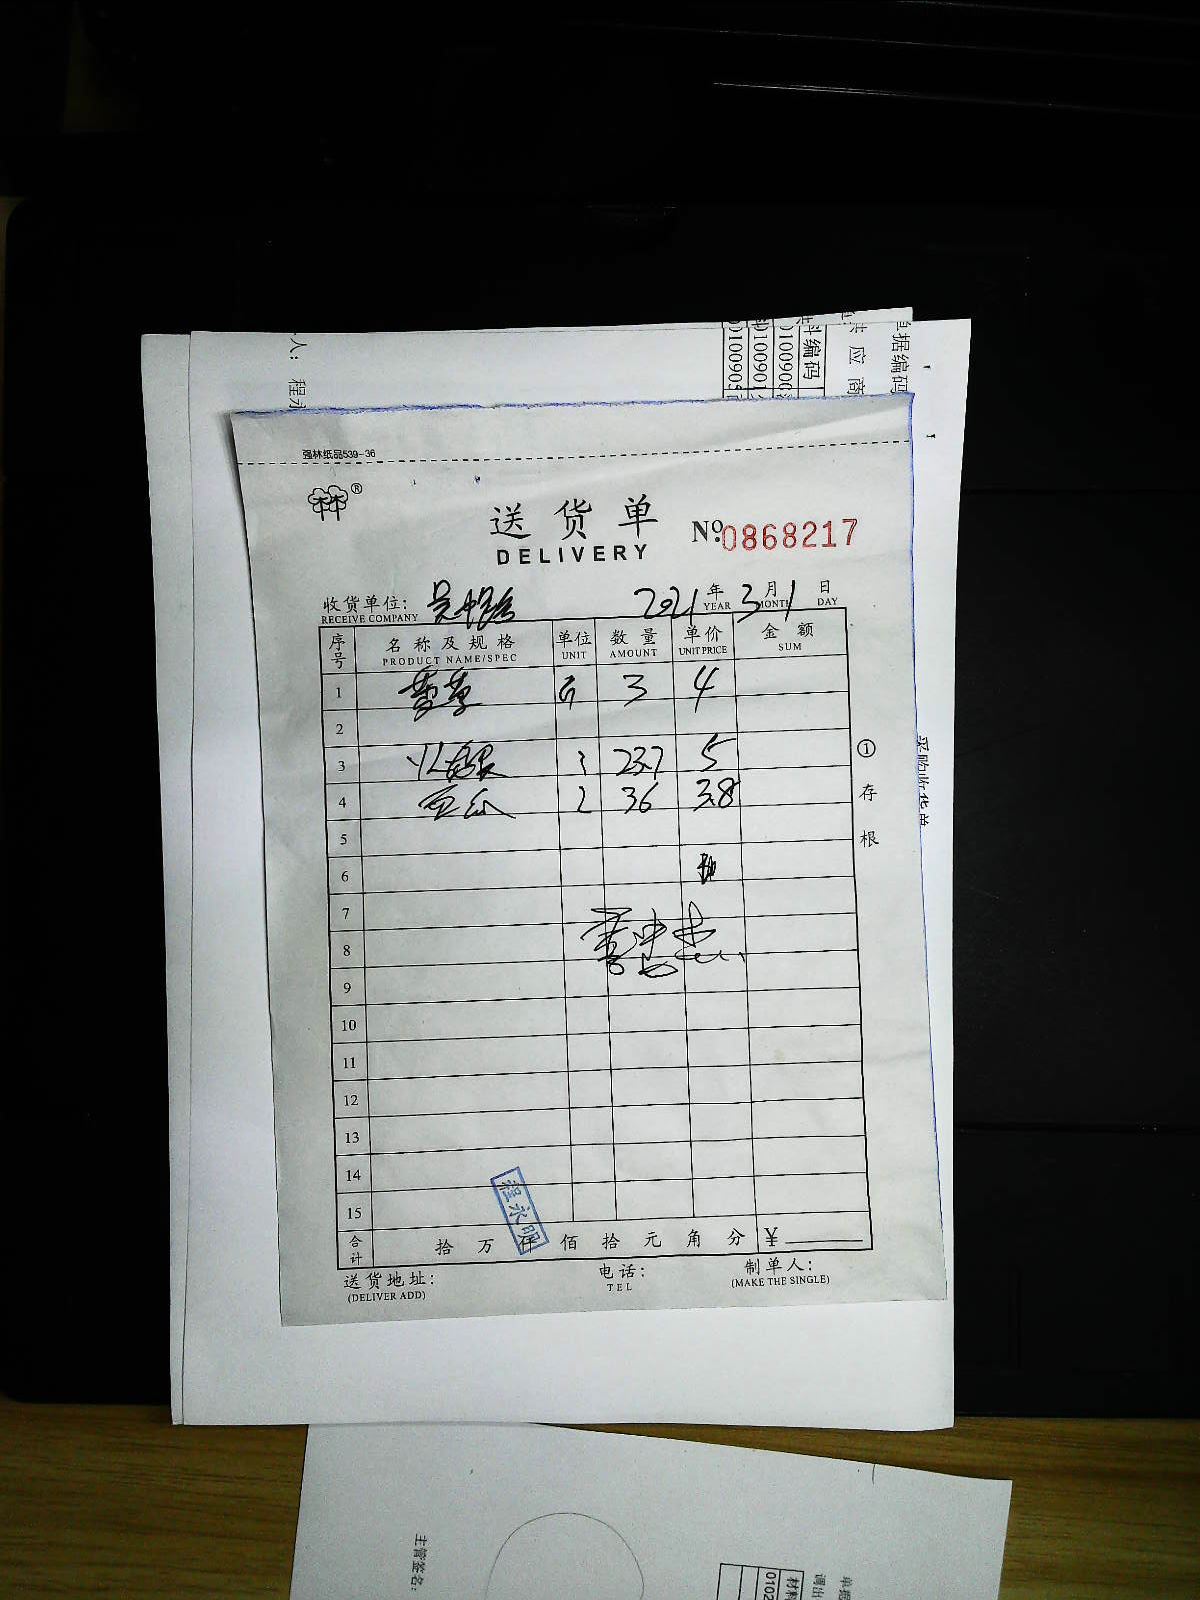 人：程永
单据编码
供应商
料编码
强林纸品539-36
®
送货单 №0868217
DELIVERY
收货单位： 2021年3月1日
RECEIVE COMPANY YEAR MONTH DAY
序号 名称及规格 单位 数量 单价 金额
PRODUCT NAME/SPEC UNIT AMOUNT UNIT PRICE SUM
1 3 4
2
3 23.7 5
4 36 3.8
5
6
7
8
9
10
11
12
13
14
15
①存根
程永明
合计 拾万仟佰拾元角分 ¥
送货地址： 电话： 制单人：
(DELIVER ADD) TEL (MAKE THE SINGLE)
主管签名：
单据
调出
材料
0102